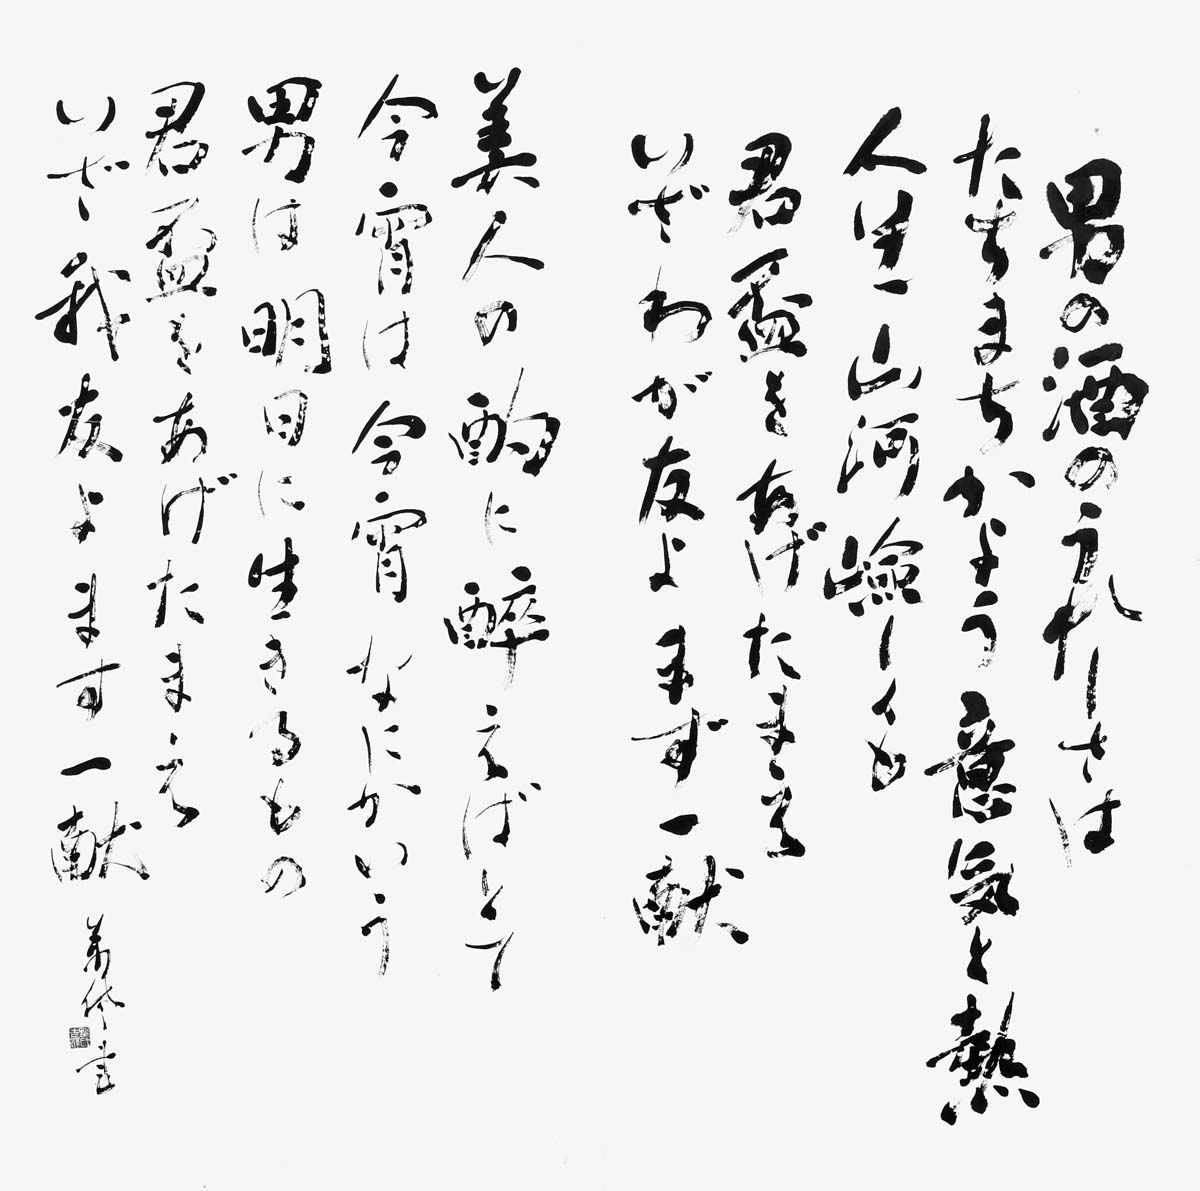 男の酒のうれしさは
たちまちかよう意気と熱
人生山河嶮しくも
君盃をあげたまえ
いざわが友よまず一献
美人の酌に酔えばとて
今宵は今宵なにかいう
男は明日に生きるもの
君盃をあげたまえ
いざ我友よまず一献
書